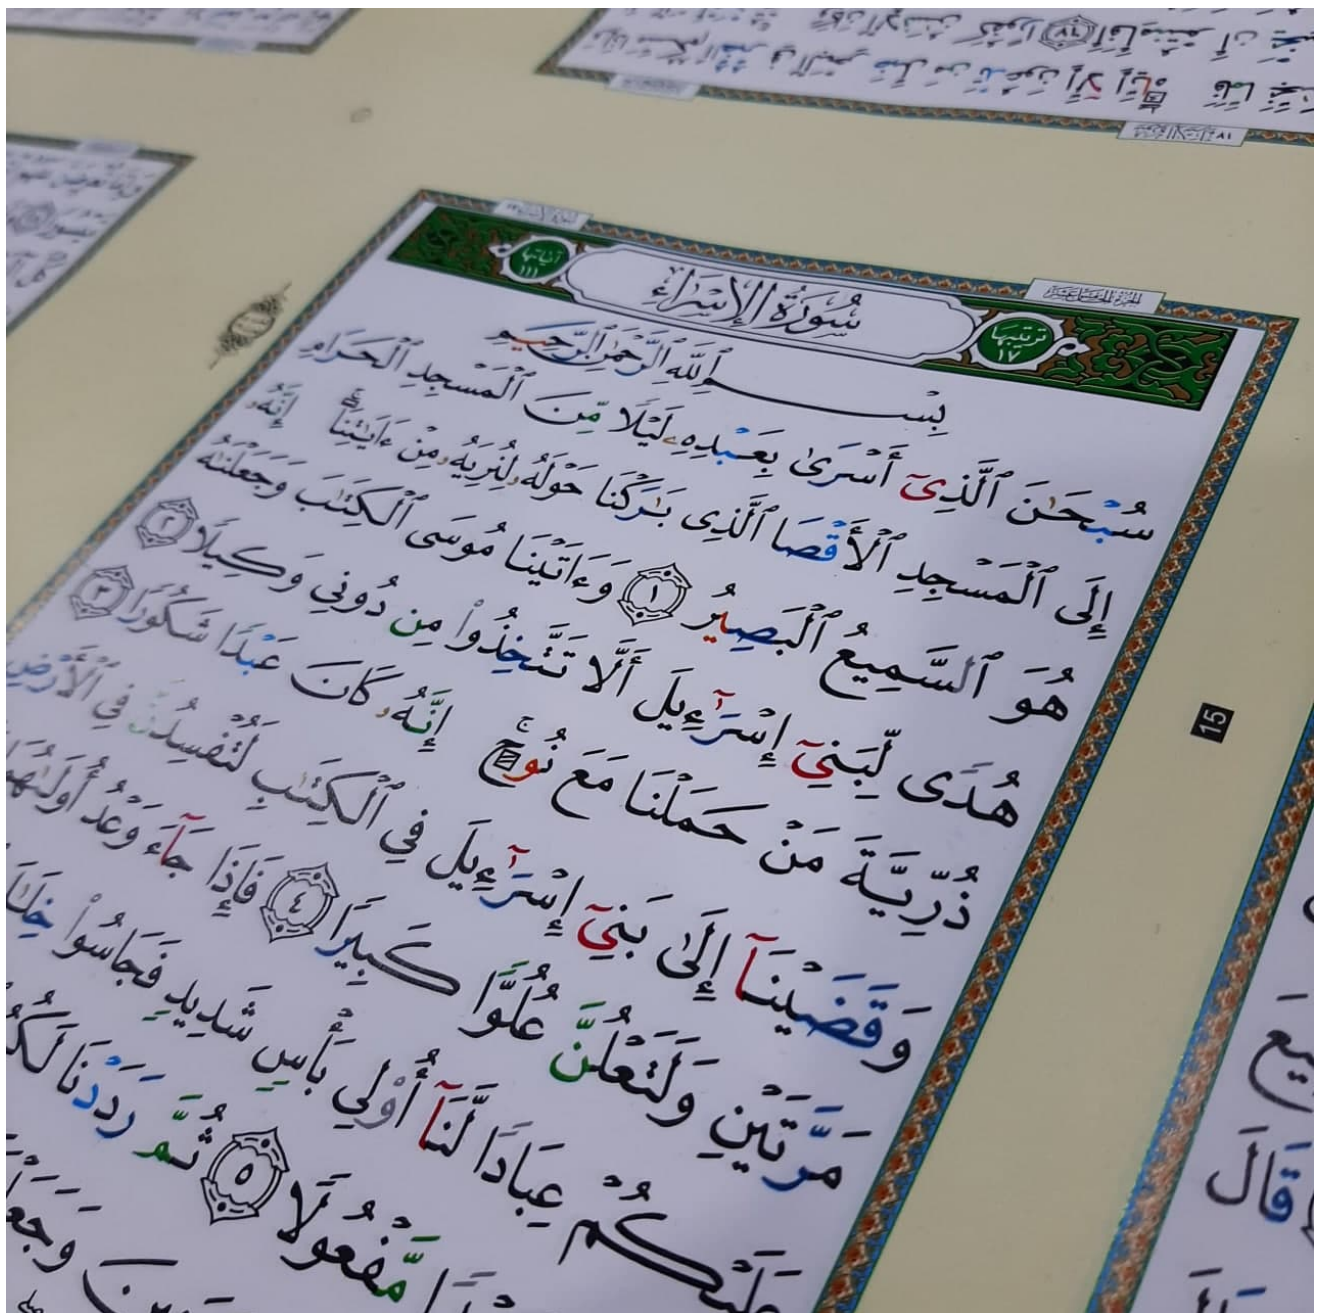 سُورَةُ الإِسْرَاءِ
ترتيبها
١٧
آياتها
١١١
بِسْمِ ٱللَّهِ ٱلرَّحْمَٰنِ ٱلرَّحِيمِ
سُبْحَٰنَ ٱلَّذِىٓ أَسْرَىٰ بِعَبْدِهِۦ لَيْلًا مِّنَ ٱلْمَسْجِدِ ٱلْحَرَامِ
إِلَى ٱلْمَسْجِدِ ٱلْأَقْصَا ٱلَّذِى بَٰرَكْنَا حَوْلَهُۥ لِنُرِيَهُۥ مِنْ ءَايَٰتِنَآ ۚ إِنَّهُۥ
هُوَ ٱلسَّمِيعُ ٱلْبَصِيرُ ١ وَءَاتَيْنَا مُوسَى ٱلْكِتَٰبَ وَجَعَلْنَٰهُ
هُدًى لِّبَنِىٓ إِسْرَٰٓءِيلَ أَلَّا تَتَّخِذُوا۟ مِن دُونِى وَكِيلًا ٢
ذُرِّيَّةَ مَنْ حَمَلْنَا مَعَ نُوحٍ ۚ إِنَّهُۥ كَانَ عَبْدًا شَكُورًا ٣
وَقَضَيْنَآ إِلَىٰ بَنِىٓ إِسْرَٰٓءِيلَ فِى ٱلْكِتَٰبِ لَتُفْسِدُنَّ فِى ٱلْأَرْضِ
مَرَّتَيْنِ وَلَتَعْلُنَّ عُلُوًّا كَبِيرًا ٤ فَإِذَا جَآءَ وَعْدُ أُولَىٰهُمَا
عَلَيْكُمْ عِبَادًا لَّنَآ أُو۟لِى بَأْسٍ شَدِيدٍ فَجَاسُوا۟
مَّفْعُولًا ٥ ثُمَّ رَدَدْنَا
15
قَالَ